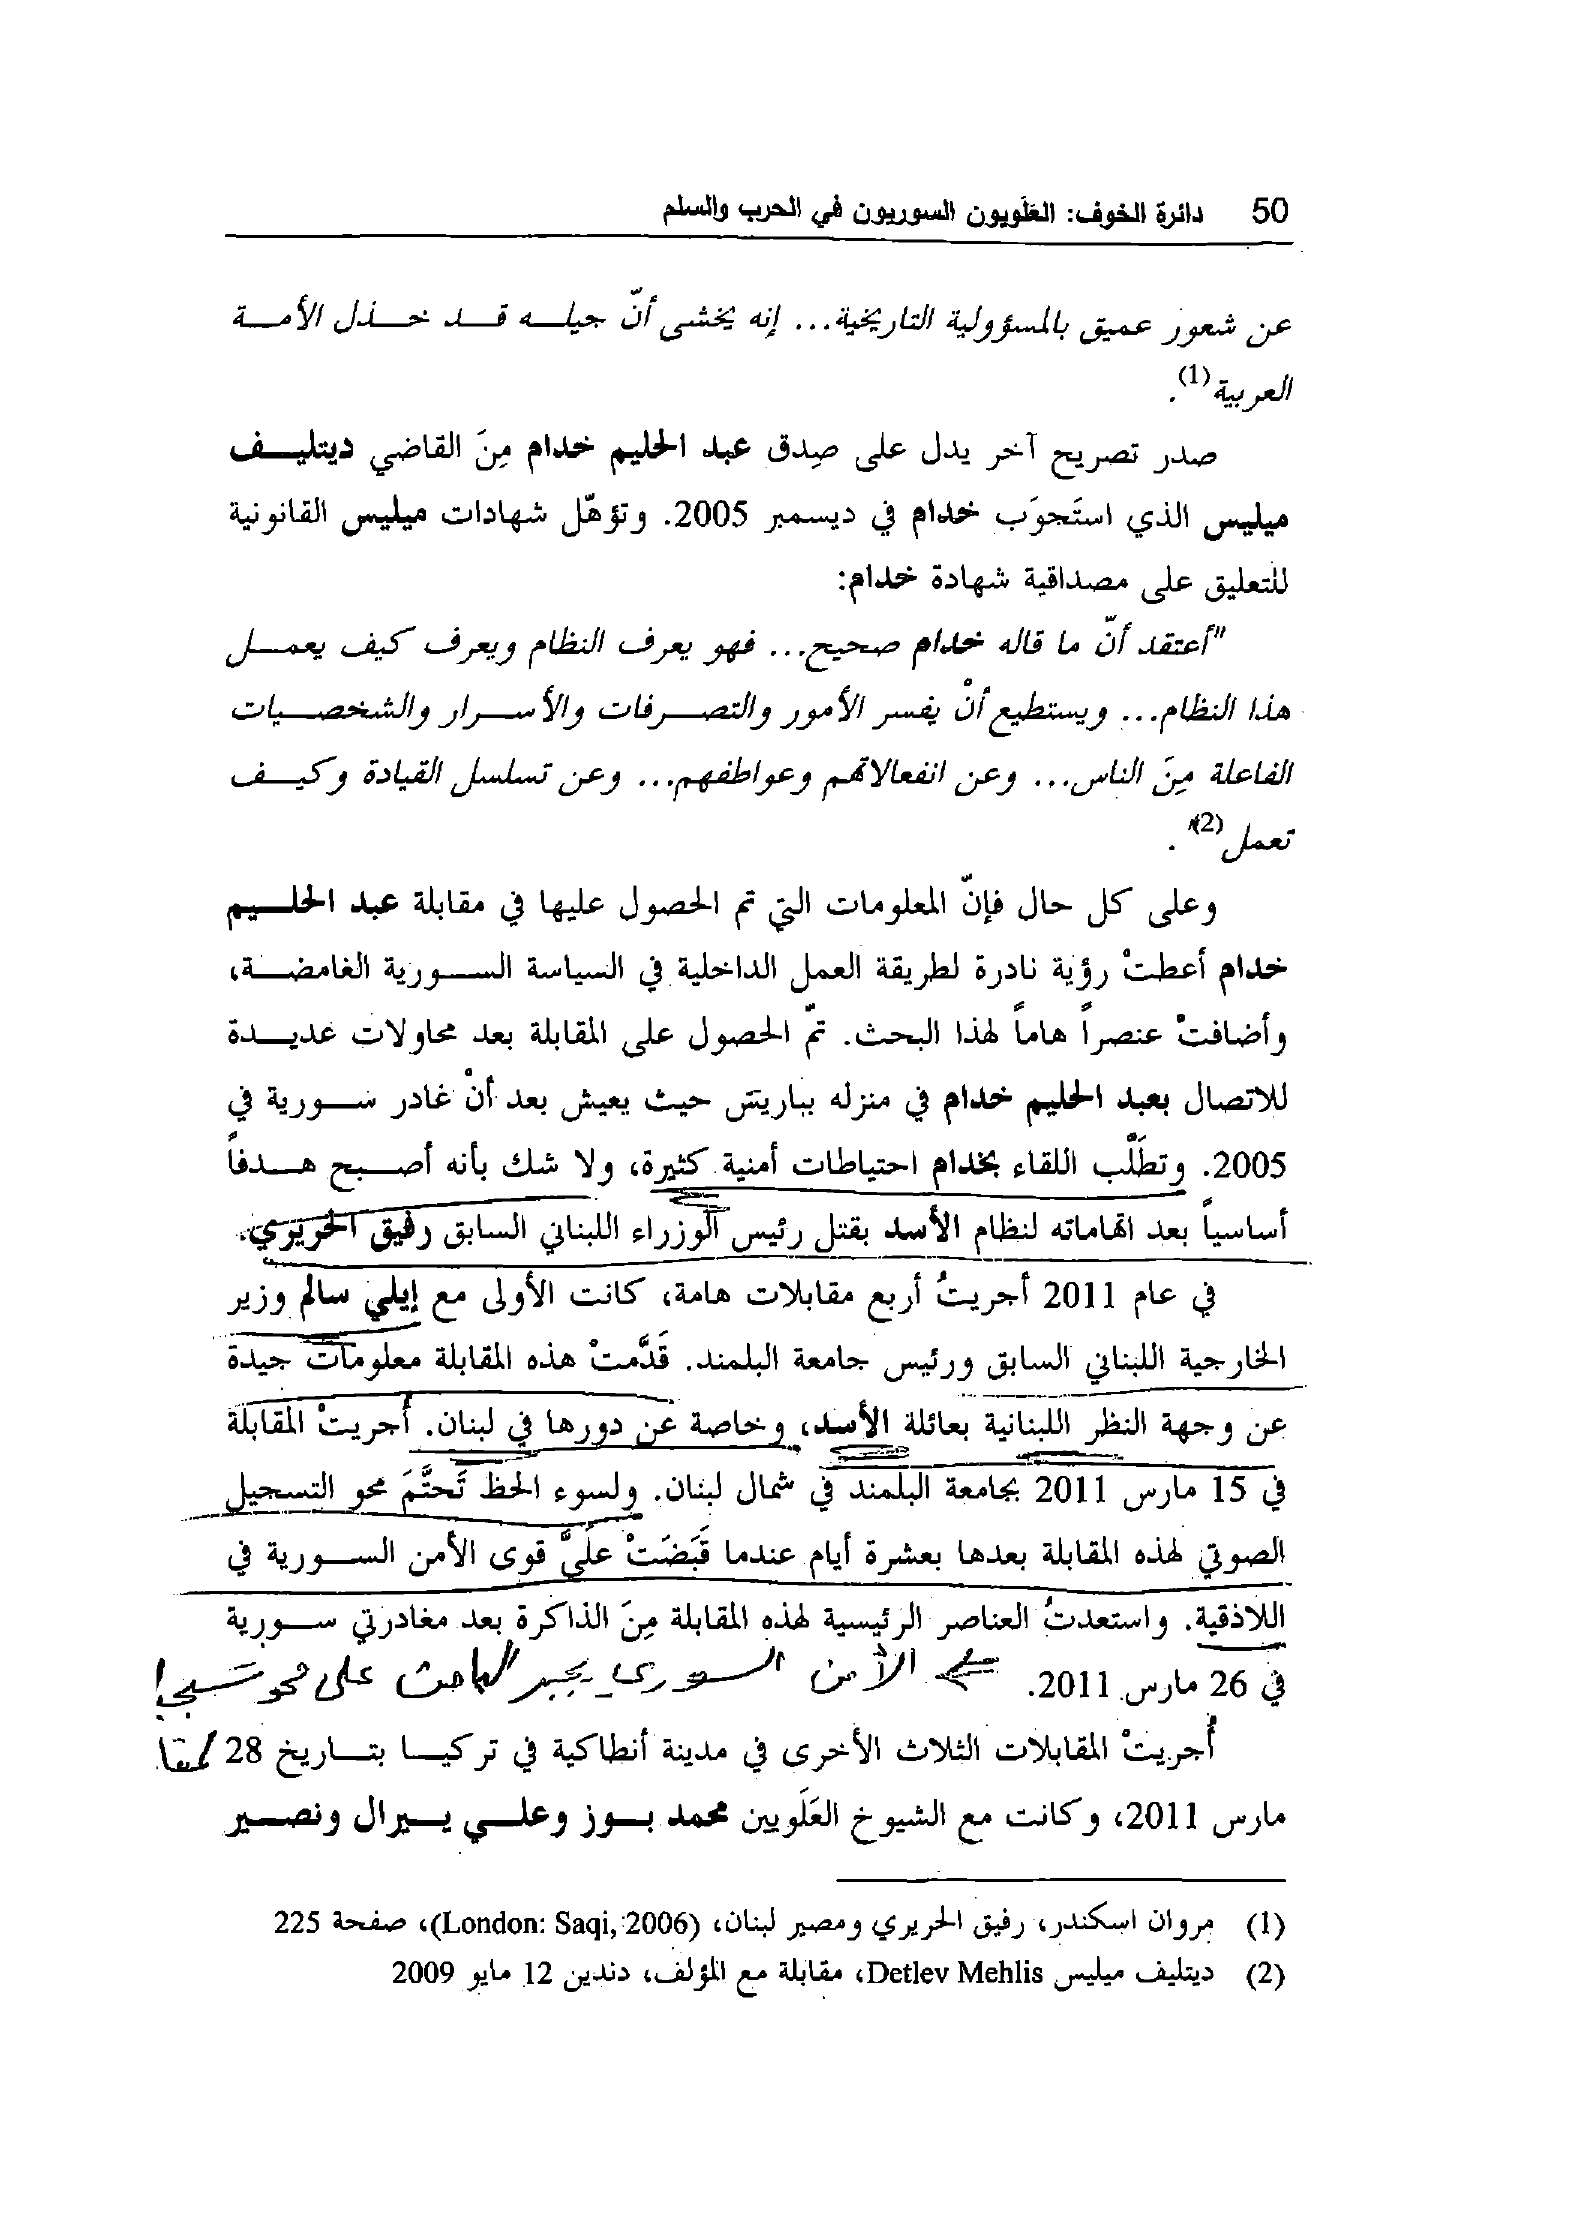 50 دائرة الخوف: العَلَويون السوريون في الحرب والسلم
عن شعور عميق بالمسؤولية التاريخية... إنه يخشى أنّ جيله قد خذل الأمة
العربية(1).
صدر تصريح آخر يدل على صِدق عبد الحليم خدام مِنَ القاضي ديتليف
ميليس الذي استَجوَب خدام في ديسمبر 2005. وتؤهّل شهادات ميليس القانونية
للتعليق على مصداقية شهادة خدام:
"أعتقد أنّ ما قاله خدام صحيح... فهو يعرف النظام ويعرف كيف يعمل
هذا النظام... ويستطيع أنْ يفسر الأمور والتصرفات والأسرار والشخصيات
الفاعلة مِنَ الناس... وعن انفعالاتهم وعواطفهم... وعن تسلسل القيادة وكيف
تعمل"(2).
وعلى كل حال فإنّ المعلومات التي تم الحصول عليها في مقابلة عبد الحليم
خدام أعطتْ رؤية نادرة لطريقة العمل الداخلية في السياسة السورية الغامضة،
وأضافتْ عنصراً هاماً لهذا البحث. تمّ الحصول على المقابلة بعد محاولات عديدة
للاتصال بعبد الحليم خدام في منزله بباريس حيث يعيش بعد أنْ غادر سورية في
2005. وتطلَّب اللقاء بخدام احتياطات أمنية كثيرة، ولا شك بأنه أصبح هدفاً
أساسياً بعد اتهاماته لنظام الأسد بقتل رئيس الوزراء اللبناني السابق رفيق الحريري.
في عام 2011 أجريتُ أربع مقابلات هامة، كانت الأولى مع إيلي سالم وزير
الخارجية اللبناني السابق ورئيس جامعة البلمند. قَدَّمتْ هذه المقابلة معلومات جيدة
عن وجهة النظر اللبنانية بعائلة الأسد، وخاصة عن دورها في لبنان. أُجريتْ المقابلة
في 15 مارس 2011 بجامعة البلمند في شمال لبنان. ولسوء الحظ تَحتَّمَ محو التسجيل
الصوتي لهذه المقابلة بعدها بعشرة أيام عندما قَبَضَتْ عليَّ قوى الأمن السورية في
اللاذقية. واستعدتُ العناصر الرئيسية لهذه المقابلة مِنَ الذاكرة بعد مغادرتي سورية
في 26 مارس 2011. الأمن السوري يجبر الباحث على محو تسجيل
أُجريتْ المقابلات الثلاث الأخرى في مدينة أنطاكية في تركيا بتاريخ 28
مارس 2011، وكانت مع الشيوخ العَلَويين محمد بوز وعلي ييرال ونصير
(1) مروان اسكندر، رفيق الحريري ومصير لبنان، (London: Saqi, 2006)، صفحة 225
(2) ديتليف ميليس Detlev Mehlis، مقابلة مع المؤلف، دندين 12 مايو 2009